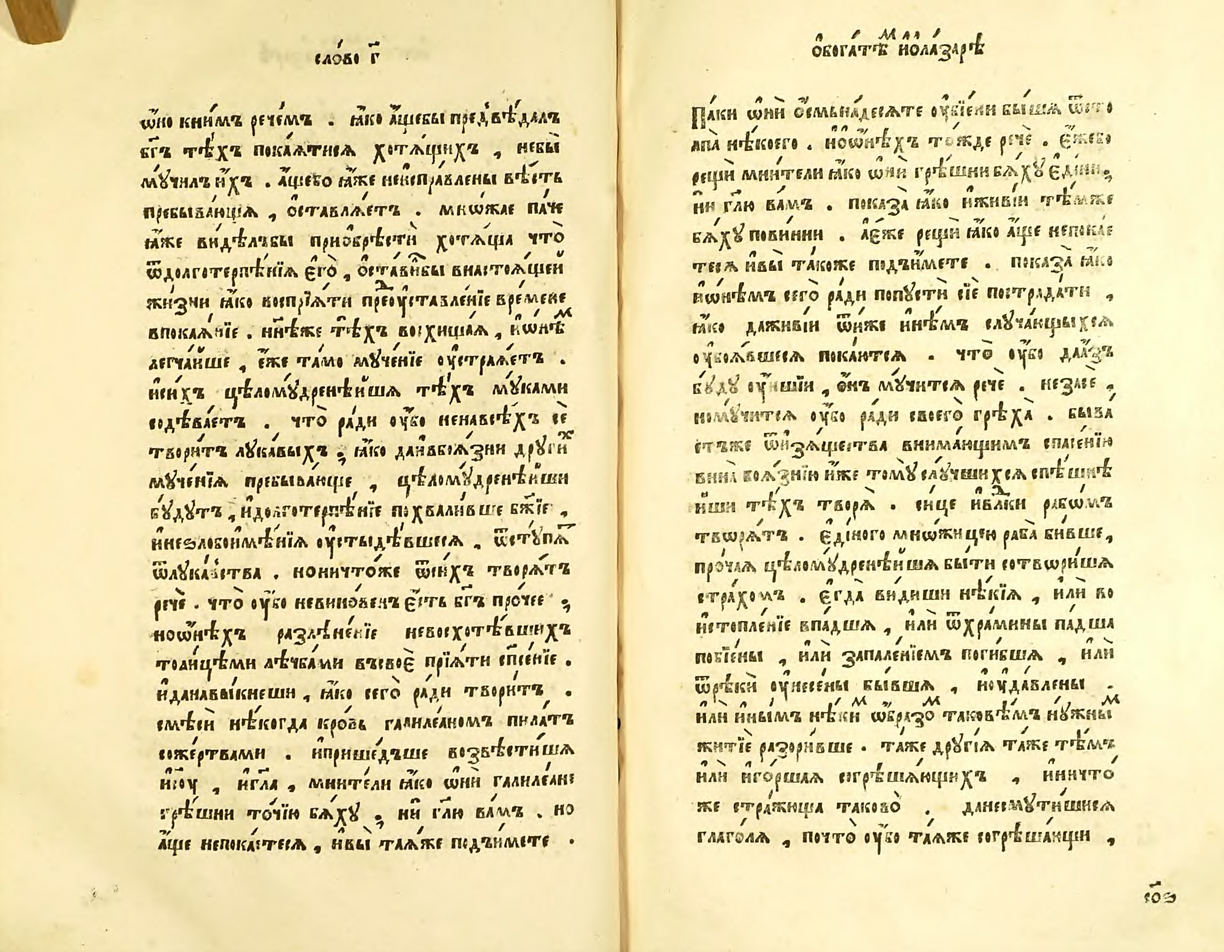 сло́во г҃
ѡ҆́но кни́мъ рече́мъ . ꙗ҆́ко а҆́щебы предвѣ́далъ
бг҃ъ тѣ́хъ покаѧ́тисѧ хотѧ́щихъ , небы̀
мꙋ́чилъ и҆́хъ . а҆́щебо ꙗ҆́же неиспра́влены вѣ́сть
пребыва́ющїѧ , ѡ҆ставлѧ́етъ . мно́жае па́че
ꙗ҆́же ви́дѣлъбы приѡбрѣ́сти хотѧ́ща что̀
ѿдолготерпѣ́нїѧ є҆го̀ , ѡ҆ста́вилбы внастоѧ́щей
жи́зни ꙗ҆́ко воспрїѧ́ти преꙋставле́нїе вре́мене
впокаѧ́нїе . нн҃ѣже тѣ́хъ восхища́ѧ , и҆ѡ҆́нѣм
легча́йше , є҆́же та́мо мꙋче́нїе ᲂу҆строѧ́етъ .
и҆си́хъ цѣломꙋ́дренѣйшѧ тѣ́хъ мꙋ́ками
содѣ́ваетъ . что̀ ра́ди ᲂу҆́бо ненавсѣ́хъ сѐ
твори́тъ лꙋка́выхъ ; ꙗ҆́ко даивбоѧ́зни дрꙋги́х
мꙋче́нїѧ пребыва́юще , цѣломꙋ́дренѣйши
бꙋ́дꙋтъ , и҆долготерпѣ́нїе похвали́вше бж҃їе ,
и҆незлобоимѣ́нїѧ ᲂу҆стыдѣ́вшесѧ , ѿстꙋ́пѧт
ѿлꙋка́вства . нониче́тоже ѿси́хъ творѧ́тъ
речѐ . что̀ ᲂу҆́бо невино́венъ є҆́сть бг҃ъ про́чее ;
ноѡ҆́нѣхъ разлѣне́нїе невосхотѣ́вшихъ
толи́цѣми лѣ́чбами въсвоѐ прїѧ́ти спс҃е́нїе .
и҆данавы́кнеши , ꙗ҆́ко сего̀ ра́ди твори́тъ .
смѣсѝ нѣ́когда кро́вь галиле́аномъ пила́тъ
соже́ртвами . и҆прише́дъше возвѣсти́шѧ
и҆і҃сꙋ , и҆гл҃а , мни́тели ꙗ҆́ко ѡ҆нѝ галиле́ане
грѣ́шни то́чїю бѧ́хꙋ ; нѝ гл҃ю ва́мъ . но
а҆́ще непока́етесѧ , и҆вы̀ та́ꙗже поды́мете .
ѡ҆бога́тѣм и҆ѡла́зарѣ
Па́ки ѡ҆нѝ ѻ҆смьна́десѧте ᲂу҆бїе́ни бы́шѧ ѿсто
лпа̀ нѣ́коего . и҆ѡ҆́нѣхъ то́жде речѐ . є҆́жебо
рещѝ мни́тели ꙗ҆́ко ѡ҆нѝ грѣ́шни бѧ́хꙋ є҆ди́ни ,
нѝ гл҃ю ва́мъ . показа̀ ꙗ҆́ко и҆живі́и тѣ́мже
бѧ́хꙋ пови́нни . а҆є҆́же рещѝ ꙗ҆́ко а҆́ще непока́е
тесѧ и҆вы̀ та́коже поды́мете . показа̀ ꙗ҆́ко
и҆ѡ҆нѣ́мъ сего̀ ра́ди попꙋстѝ сїѐ пострада́ти ,
ꙗ҆́ко даживі́и ѿи́же и҆нѣ́мъ слꙋча́ющихсѧ
ᲂу҆боѧ́вшесѧ пока́ютсѧ . что̀ ᲂу҆́бо да́азъ
бꙋ́дꙋ ᲂу҆́ншїи , ѻ҆́нъ мꙋ́читсѧ речѐ . неза́се ,
номꙋ́читсѧ ᲂу҆́бо ра́ди своего̀ грѣха̀ . быва́
етъже ѿизѧ́щества внима́ющимъ спасе́нїю
вина̀ боѧ́знїю и҆́же томꙋ̀ слꙋ́чшихсѧ спѣшнѣ́
йши тѣ́хъ творѧ̀ . си́це и҆влⷣки рабѡ́мъ
творѧ́тъ . є҆ди́ного мно́жицею раба̀ би́вше ,
про́чаѧ цѣломꙋ́дренѣйшѧ бы́ти сотвори́шѧ
стра́хомъ . є҆гда̀ ви́диши нѣ́кїѧ , и҆лѝ во
истопле́нїе впа́дшѧ , и҆лѝ ѿхра́мины па́дша
побїе́ны , и҆лѝ запале́нїемъ поги́бшѧ , и҆лѝ
ѿрѣкѝ ᲂу҆несе́ны бы́вшѧ , и҆ᲂу҆да́влены .
и҆лѝ и҆ны́мъ нѣ́ким ѡ҆́бразом таковѣ́мъ нꙋ́жным
житїѐ разори́вше . та́же дрꙋгі́ѧ та́же тѣ́мъ
и҆лѝ и҆го́ршаѧ согрѣша́ющихъ , и҆ничто́
же стра́жꙋща таково̀ . данесмꙋти́шисѧ
глаго́лѧ , почто̀ ᲂу҆́бо та́ꙗже согрѣша́ющи ,
со҃з